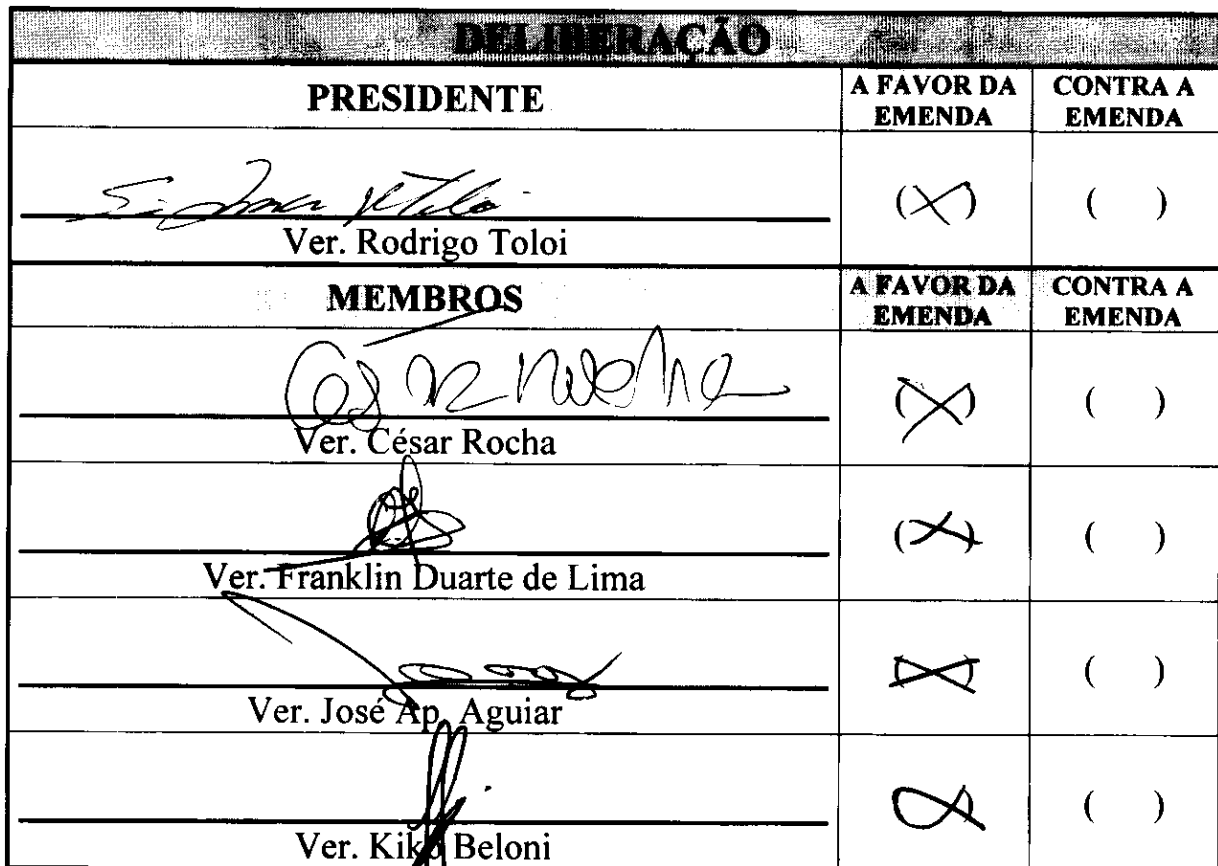 DELIBERAÇÃO
PRESIDENTE A FAVOR DA EMENDA CONTRA A EMENDA
(X) ( )
Ver. Rodrigo Toloi
MEMBROS A FAVOR DA EMENDA CONTRA A EMENDA
César Rocha (X) ( )
Ver. César Rocha
(X) ( )
Ver. Franklin Duarte de Lima
(X) ( )
Ver. José Ap. Aguiar
(X) ( )
Ver. Kiko Beloni